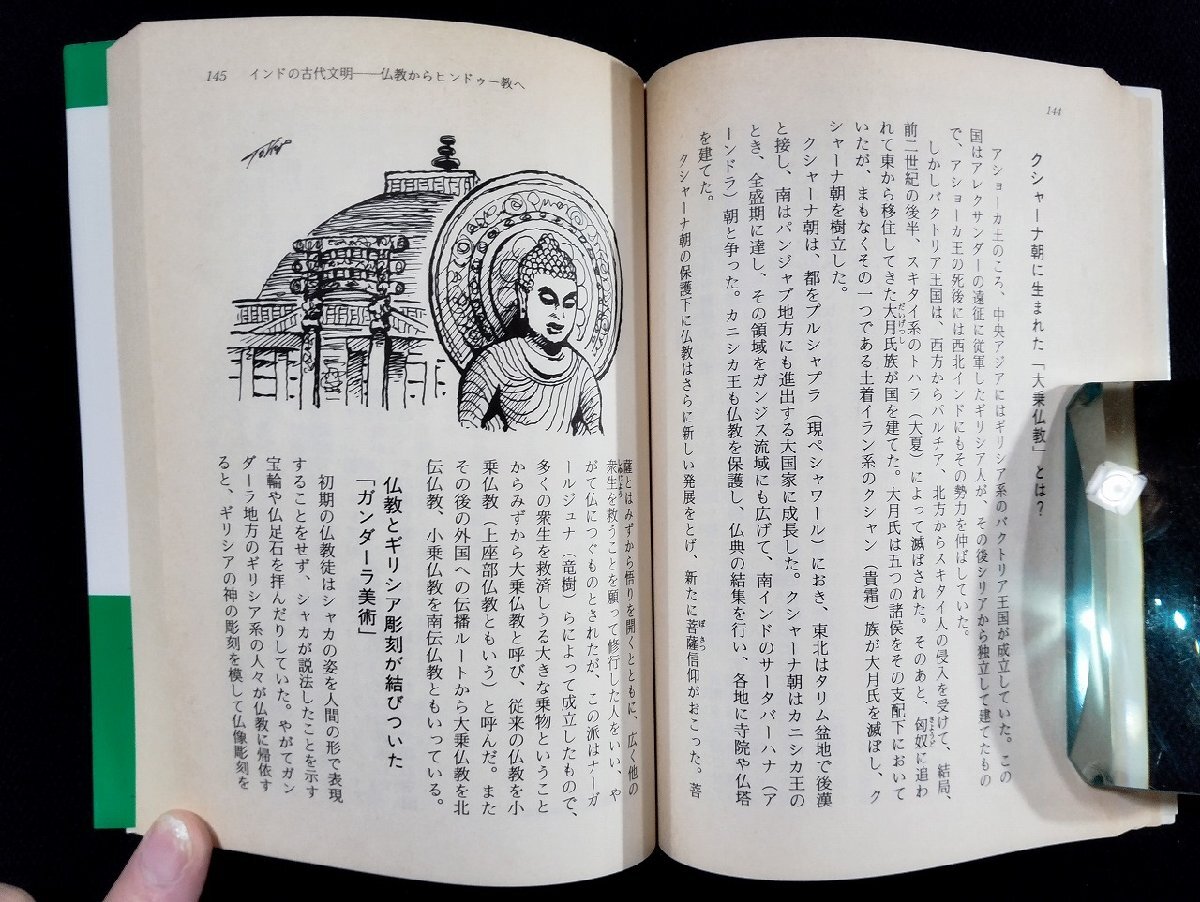 144
クシャーナ朝に生まれた「大乗仏教」とは？
アショーカ王のころ、中央アジアにはギリシア系のバクトリア王国が成立していた。この
国はアレクサンダーの遠征に従軍したギリシア人が、その後シリアから独立して建てたもの
で、アショーカ王の死後には西北インドにもその勢力を伸ばしていた。
しかしバクトリア王国は、西方からパルチア、北方からスキタイ人の侵入を受けて、結局、
前二世紀の後半、スキタイ系のトハラ（大夏）によって滅ぼされた。そのあと、匈奴に追わ
れて東から移住してきた大月氏族が国を建てた。大月氏は五つの諸侯をその支配下において
いたが、まもなくその一つである土着イラン系のクシャン（貴霜）族が大月氏を滅ぼし、ク
シャーナ朝を樹立した。
クシャーナ朝は、都をプルシャプラ（現ペシャワール）におき、東北はタリム盆地で後漢
と接し、南はパンジャブ地方にも進出する大国家に成長した。クシャーナ朝はカニシカ王の
とき、全盛期に達し、その領域をガンジス流域にも広げて、南インドのサータバーハナ（ア
ーンドラ）朝と争った。カニシカ王も仏教を保護し、仏典の結集を行い、各地に寺院や仏塔
を建てた。
クシャーナ朝の保護下に仏教はさらに新しい発展をとげ、新たに菩薩信仰がおこった。菩
145 インドの古代文明――仏教からヒンドゥー教へ
薩とはみずから悟りを開くとともに、広く他の
衆生を救うことを願って修行した人をいい、や
がて仏につぐものとされたが、この派はナーガ
ールジュナ（竜樹）らによって成立したもので、
多くの衆生を救済しうる大きな乗物ということ
からみずから大乗仏教と呼び、従来の仏教を小
乗仏教（上座部仏教ともいう）と呼んだ。また
その後の外国への伝播ルートから大乗仏教を北
伝仏教、小乗仏教を南伝仏教ともいっている。
仏教とギリシア彫刻が結びついた
「ガンダーラ美術」
初期の仏教徒はシャカの姿を人間の形で表現
することをせず、シャカが説法したことを示す
宝輪や仏足石を拝んだりしていた。やがてガン
ダーラ地方のギリシア系の人々が仏教に帰依す
ると、ギリシアの神の彫刻を模して仏像彫刻を